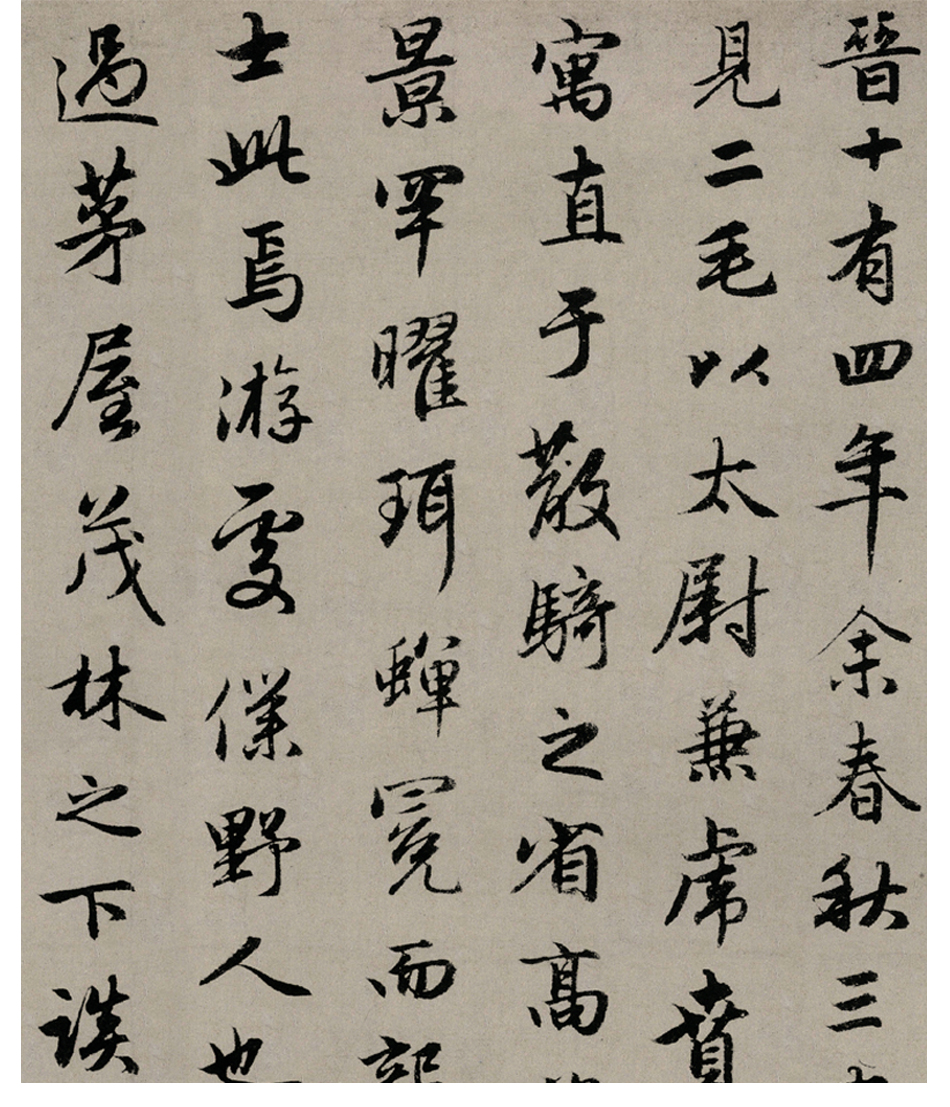 晉十有四年余春秋三
見二毛以太尉兼虎賁
寓直于散騎之省高
景罕曜珥蟬冕而
士此焉游處僕野人也
過茅屋茂林之下談